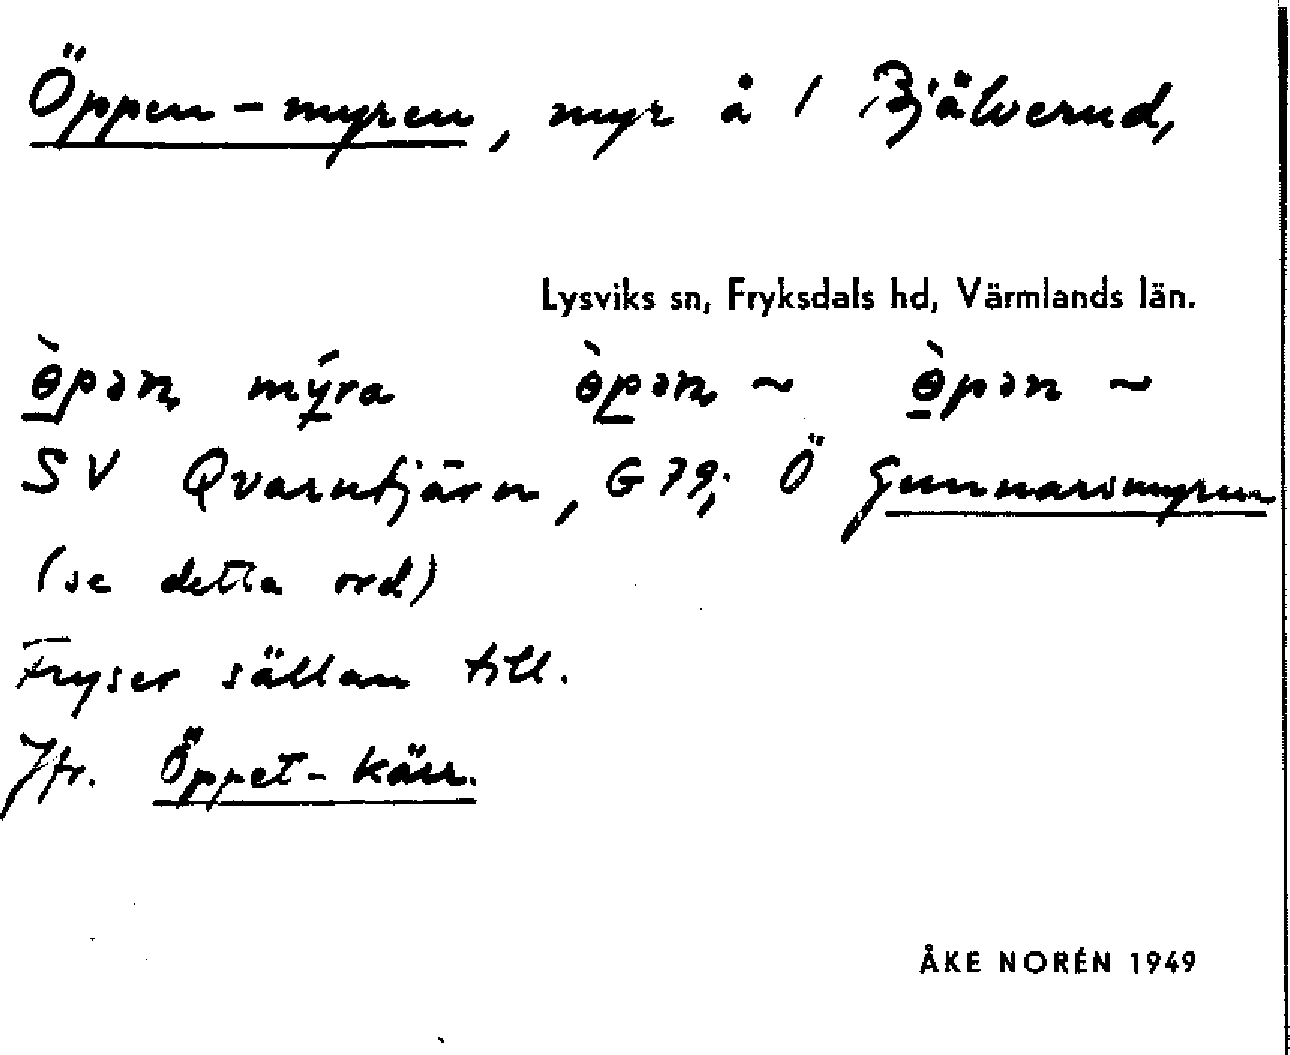 Öppen-myren, myr å 1 Bjälverud,
Lysviks sn, Fryksdals hd, Värmlands län.
ɵ̀pən mýra ɵ̀pən ~ ɵ̀pən ~
SV Qvarntjärn, G79; Ö Gunnarsmyren
(se detta ord)
Fryser sällan till.
Jfr. Öppet-kärr.
ÅKE NORÉN 1949